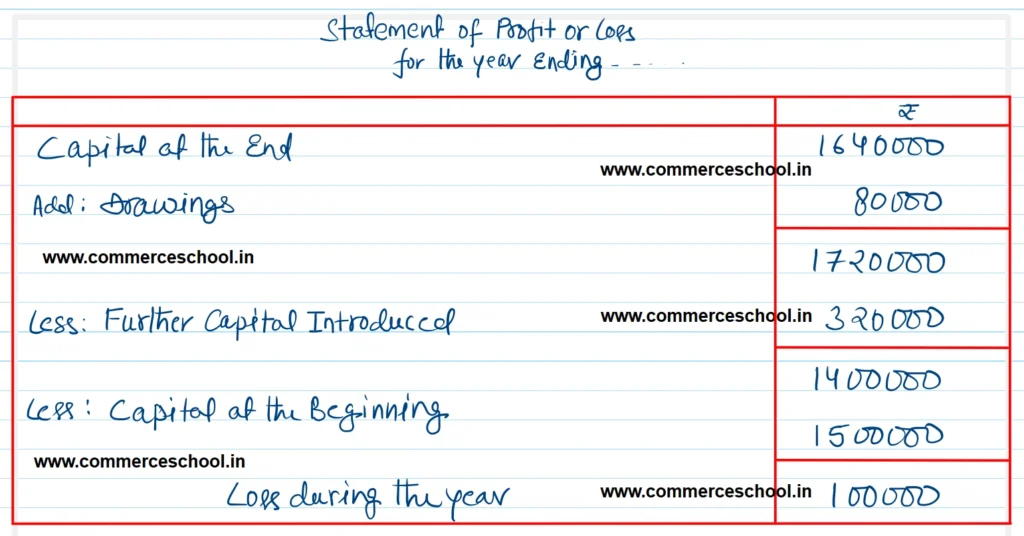 Statement of Profit or Loss
for the year Ending - - - - - -
₹
Capital at the End 1640000
www.commerceschool.in
Add: Drawings 80000
www.commerceschool.in 1720000
Less: Further Capital Introduced www.commerceschool.in 320000
1400000
Less: Capital at the Beginning
1500000
www.commerceschool.in
Loss during the year www.commerceschool.in 100000